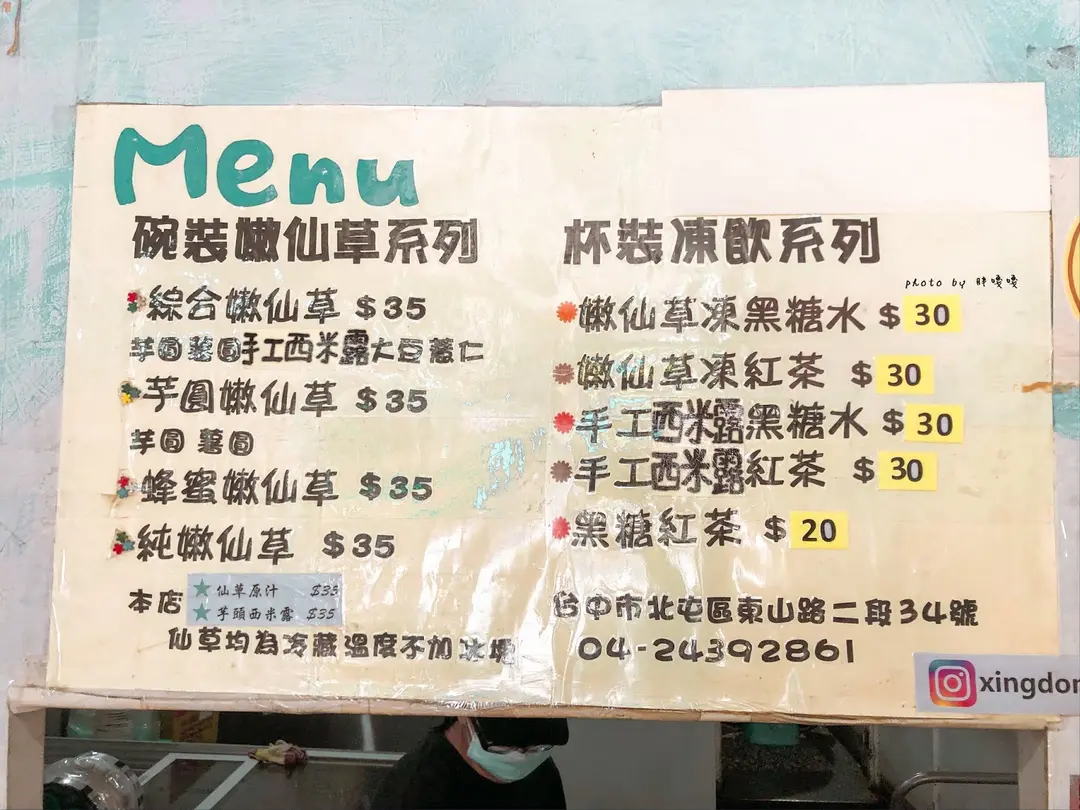 Menu
碗裝嫩仙草系列
綜合嫩仙草 $35
芋圓 薯圓手工西米露大豆薏仁
芋圓嫩仙草 $35
芋圓 薯圓
蜂蜜嫩仙草 $35
純嫩仙草 $35
本店
仙草原汁 $35
芋頭西米露 $35
仙草均為冷藏溫度不加冰塊
杯裝凍飲系列
photo by 胖嘎嘎
嫩仙草凍黑糖水 $ 30
嫩仙草凍紅茶 $ 30
手工西米露黑糖水 $ 30
手工西米露紅茶 $ 30
黑糖紅茶 $ 20
台中市北屯區東山路二段34號
04-24392861
xingdon